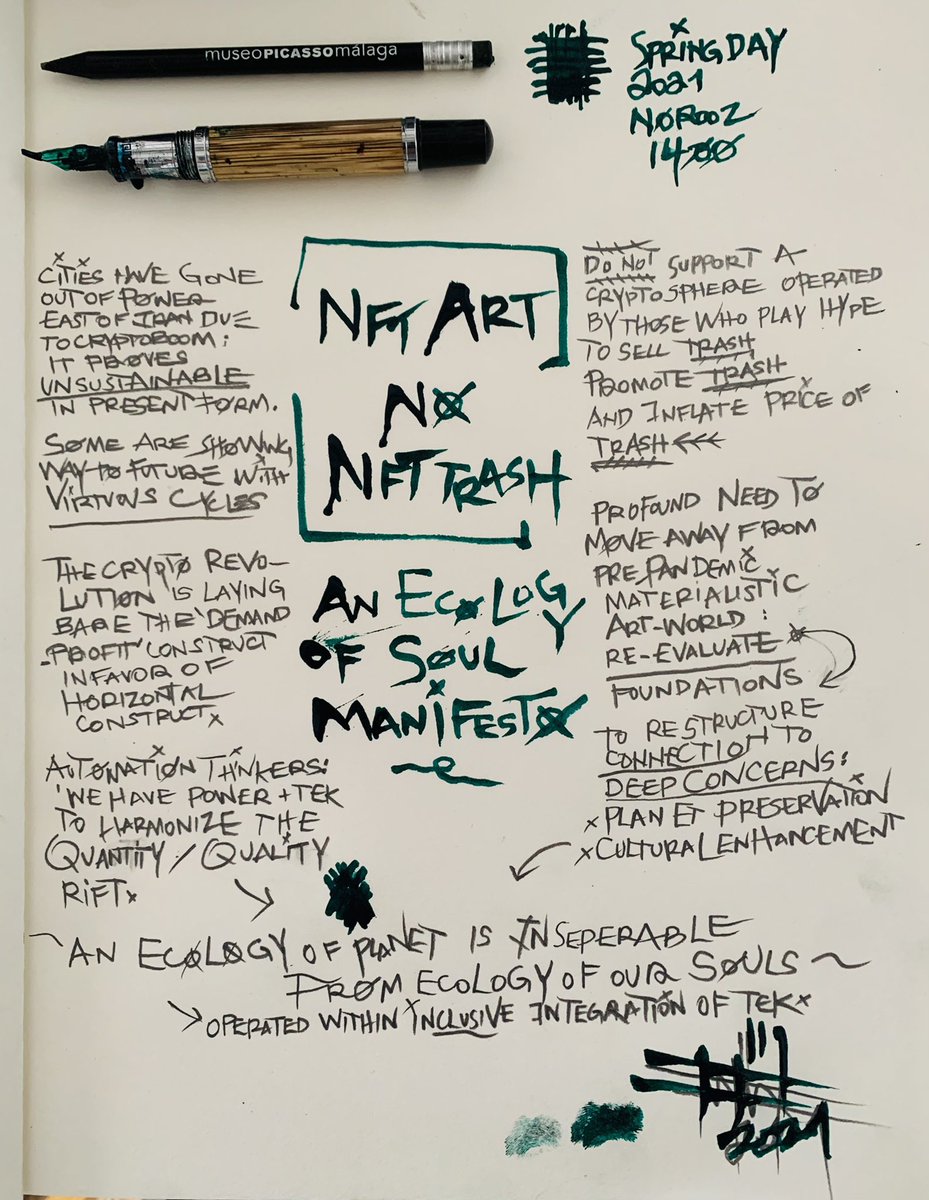 museoPICASSOmálaga
SPRING DAY
2021
NØROOZ
14ØØ
CITIES HAVE GONE
OUT OF POWER
EAST OF IRAN DUE
TO CRYPTOBOOM:
IT PROVES
UNSUSTAINABLE
IN PRESENT FORM.
SOME ARE SHOWING
WAY TO FUTURE WITH
VIRTUOUS CYCLES
THE CRYPTO REVO-
LUTION IS LAYING
BARE THE 'DEMAND
-PROFIT' CONSTRUCT
IN FAVOR OF
HORIZONTAL
CONSTRUCT
AUTOMATION THINKERS:
'WE HAVE POWER + TEK
TO HARMONIZE THE
QUANTITY / QUALITY
RIFT
NFT ART
NØ
NFT TRASH
AN ECØLOGY
ØF SØUL
MANIFESTØ
DO NOT SUPPORT A
CRYPTOSPHERE OPERATED
BY THOSE WHO PLAY HYPE
TO SELL TRASH
PROMOTE TRASH
AND INFLATE PRICE OF
TRASH <<<
PROFOUND NEED TO
MOVE AWAY FROM
PRE PANDEMIC
MATERIALISTIC
ART-WORLD:
RE-EVALUATE
FOUNDATIONS
TO RESTRUCTURE
CONNECTION TO
DEEP CONCERNS:
x PLANET PRESERVATION
x CULTURAL ENHANCEMENT
~ AN ECØLØGY OF PLANET IS INSEPERABLE
FROM ECOLOGY OF OUR SØULS ~
OPERATED WITHIN INCLUSIVE INTEGRATION OF TEK
2021